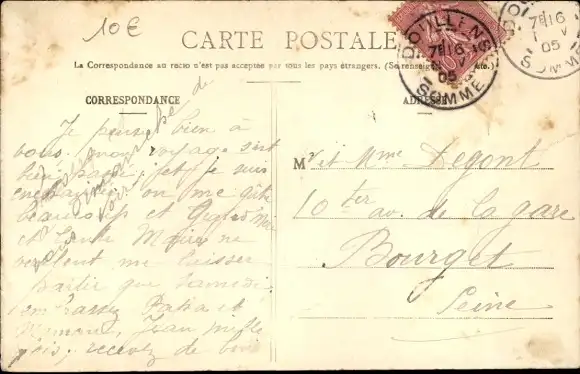 10€
CARTE POSTALE
La Correspondance au recto n'est pas acceptée par tous les pays étrangers. (Se renseigner
CORRESPONDANCE
ADRESSE
DOULLENS
7E 16
05
SOMME
7E 16
05
SOMME
Je pense bien à
vous, mon voyage s'est
bien passé, et je suis
enchantée, on me gâte
beaucoup et
et Tante Maria ne
veulent me laisser
partir que Samedi
embrassez Papa et
Maman, Jean mille
fois, recevez de bons
Mr et Mme Degont
10 ter av. de la gare
Bourget
Seine